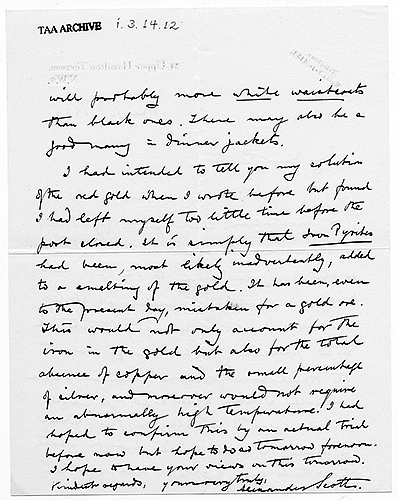 TAA ARCHIVE i.3.14.12
34 Upper Hamilton Terrace,
N.W.8.
will probably more white waistcoats
than black ones. There may also be a
good many = dinner jackets.
I had intended to tell you my solution
of the red gold when I wrote before but found
I had left myself too little time before the
post closed. It is simply that Iron Pyrites
had been, most likely inadvertently, added
to a smelting of the gold. It has been, even
to the present day, mistaken for a gold ore.
This would not only account for the
iron in the gold but also for the total
absence of copper and the small percentage
of silver, and moreover would not require
an abnormally high temperature. I had
hoped to confirm this by an actual trial
before now but hope to do so tomorrow forenoon.
I hope to have your views on this tomorrow.
Kindest regards, yours very truly,
Alexander Scott.